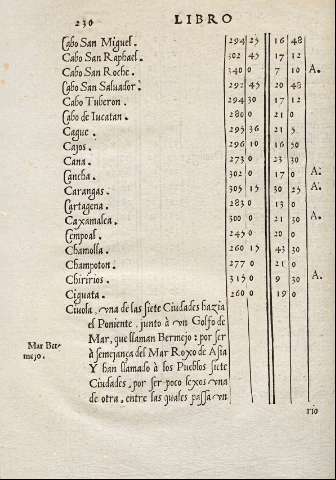 236 LIBRO
Cabo San Miguel. 294 25 16 48
Cabo San Raphael. 302 45 17 12
Cabo San Roche. 340 0 7 10 A.
Cabo San Salvador. 292 45 20 48
Cabo Tuberon. 294 30 17 12
Cabo de Iucatan. 280 0 21 0
Cague. 295 36 21 5
Cajos. 296 10 16 50
Cana. 273 0 23 30
Cancha. 302 0 17 0 A.
Carangas. 305 15 30 25 A.
Cartagena. 283 0 13 0
Caxamalca. 300 0 21 30 A.
Cempoal. 245 0 20 0
Chamolla. 260 15 43 30
Champoton. 277 0 21 0
Chiririos. 315 0 9 30 A.
Ciguata. 260 0 19 0
Ciuola, vna de las siete Ciudades hazia
el Poniente, junto à vn Golfo de
Mar, que llaman Bermejo: por ser
Mar Ber-
mejo.
à semejança del Mar Roxo de Asia
Y han llamado à los Pueblos siete
Ciudades, por ser poco lexos vna
de otra, entre las quales passa vn
rio